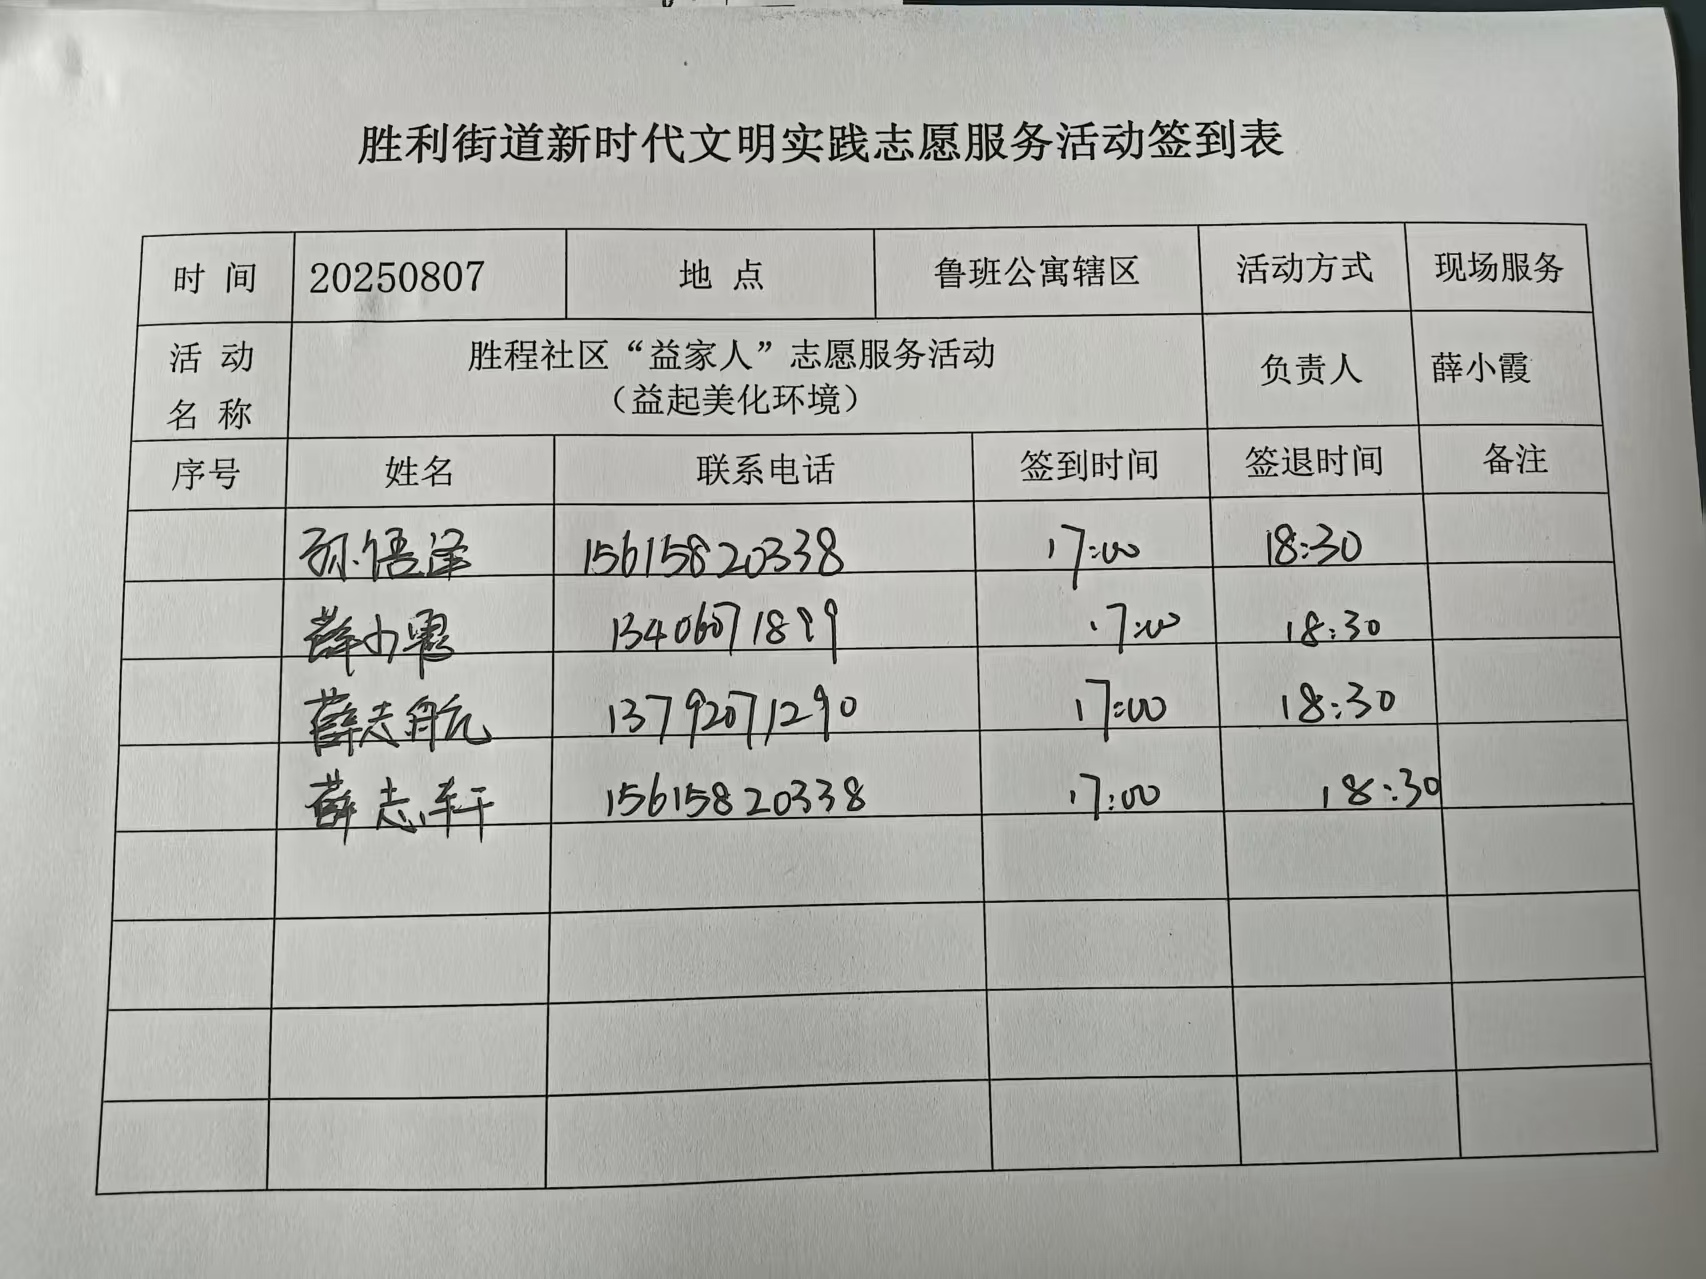 胜利街道新时代文明实践志愿服务活动签到表
时 间 20250807 地 点 鲁班公寓辖区 活动方式 现场服务
活 动 名 称 胜程社区“益家人”志愿服务活动 负责人 薛小霞
（益起美化环境）
序号 姓名 联系电话 签到时间 签退时间 备注
孙悟泽 15615820338 17:00 18:30
薛小霞 13406071899 17:00 18:30
薛志航 13792071290 17:00 18:30
薛志轩 15615820338 17:00 18:30